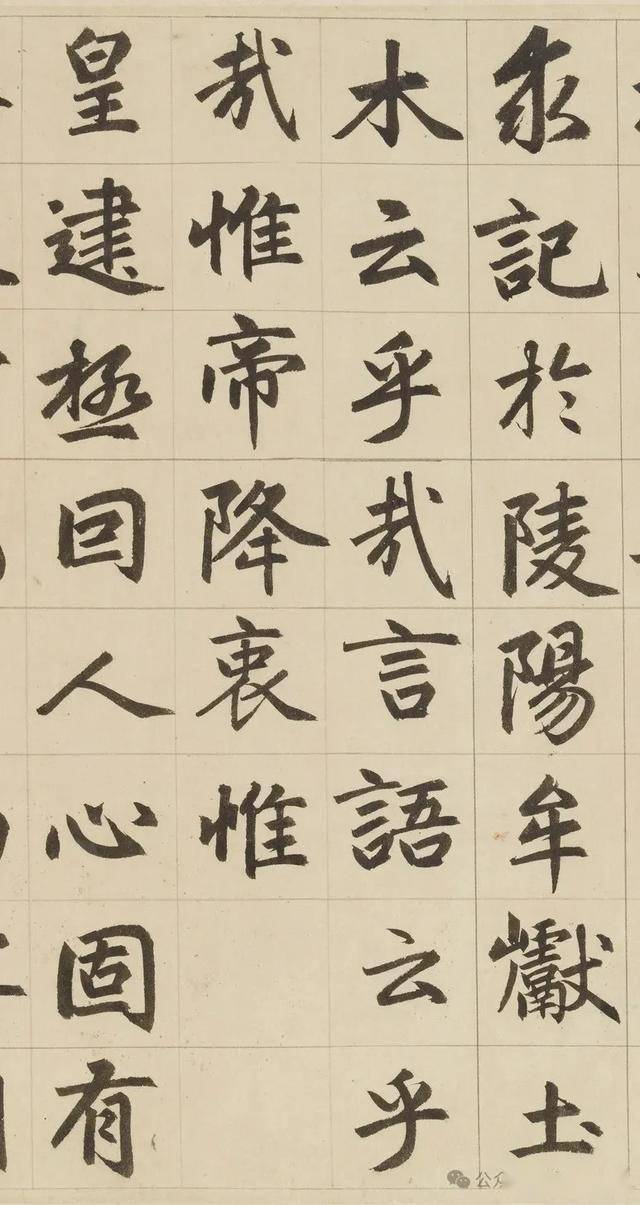 求記於陵陽牟巘土
木云乎哉言語云乎
哉惟帝降衷惟
皇建極囙人心固有
公